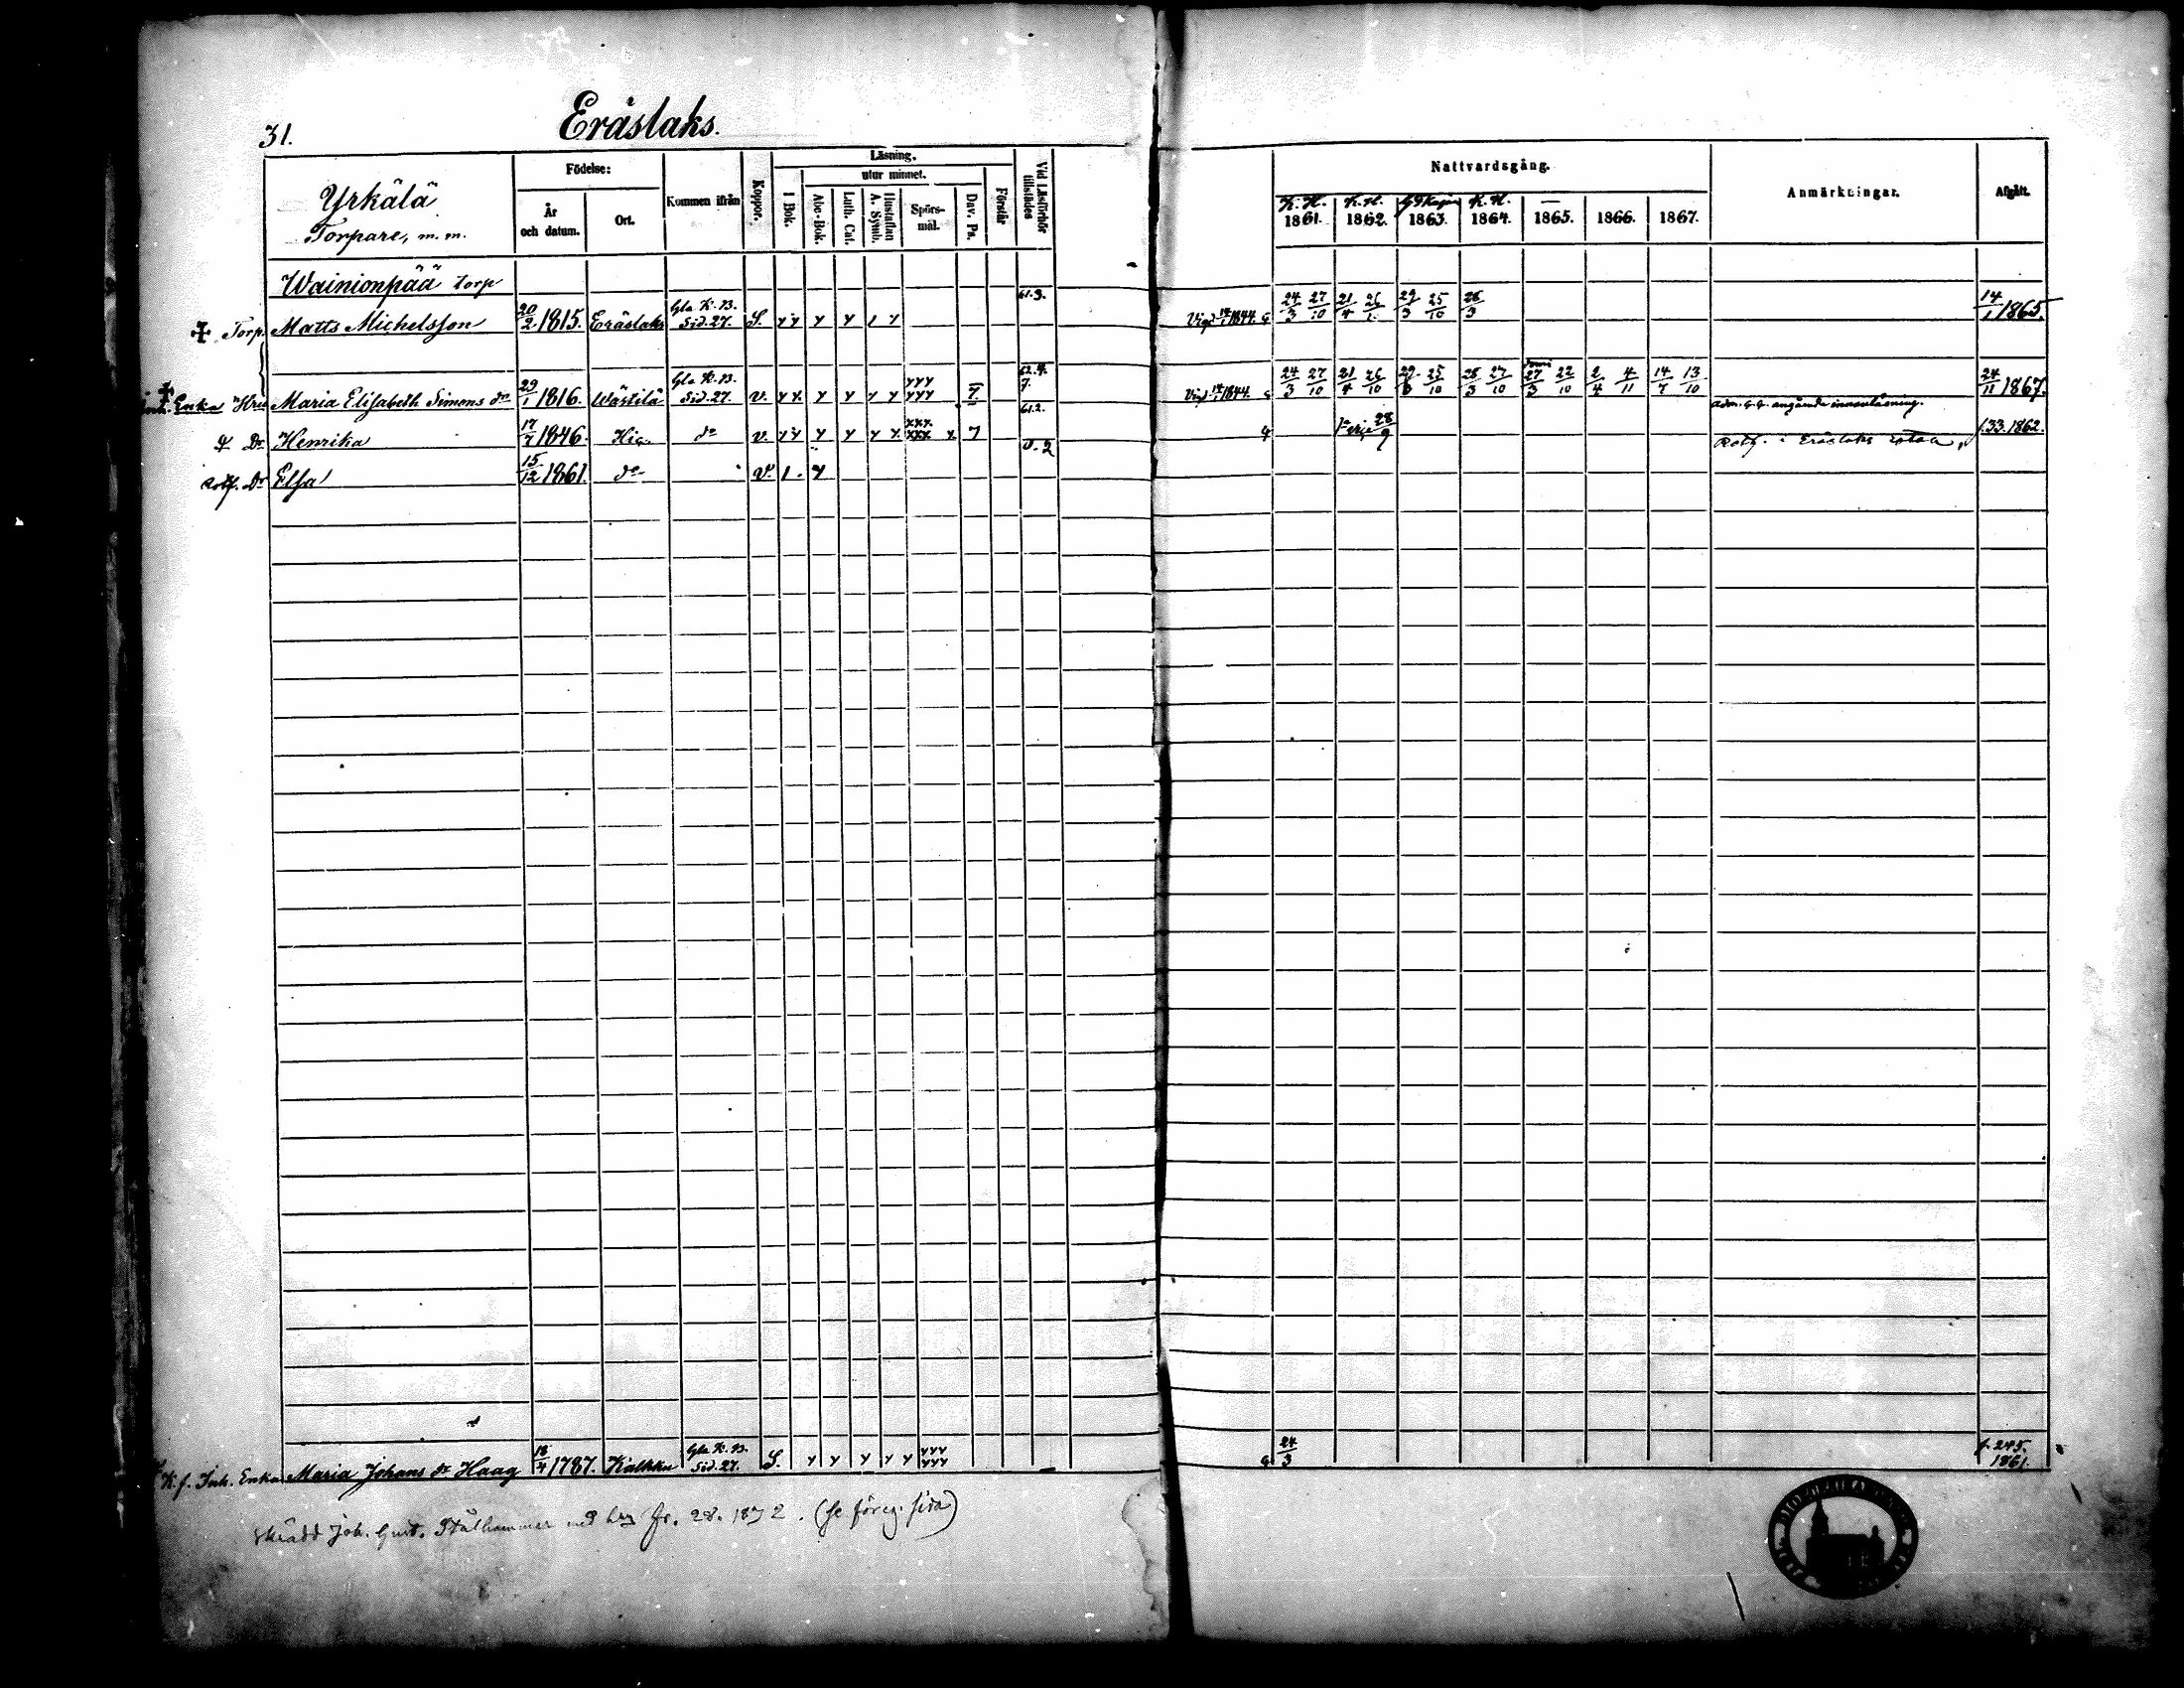 31. Eräslaks.
Yrkälä Torpare, m. m.
Födelse: År och datum. Ort.
Kommen ifrån
Koppor.
Läsning.
I Bok.
utur minnet.
Abc-Bok. Luth. Cat. Hustaflan A. Symb. Spörsmål. Dav. Ps.
Förstår
Vid Läsförhör tillstädes
Nattvardsgång.
K. H. 1861. K. H. 1862. 1863. K. H. 1864. — 1865. 1866. 1867.
Anmärkningar.
Afgått.
Wainionpää torp
Torp. Matts Michelsson 20/2 1815. Eräslaks Gla K. B. Sid. 27. S. y y y y 1 y 61.3. Vigd 1844. 24/3 27/10 21/4 29/3 25/10 14/1 1865.
Enka Hu Maria Elisabeth Simons dr 29/1 1816. Wästilä Gla K. B. Sid. 27. v. y y y y y y yyy yyy 7 62.4. 7. Vigd 1844. 24/3 27/10 21/4 26/10 25/10 27/10 27/3 22/10 2/4 4/11 14/7 13/10 angående innanläsning. 24/11 1867.
Dr Henrika 17/7 1846. do v. y y y y y y xxx xxx x 7 61.2. 28/9 i Eräslaks f. 33. 1862.
Dr Elsa 15/12 1861. do v. 1. y v. 2
K. f. Inh. Enka Maria Johans dr Haag 18/4 1787. Kalkku Gla K. B. Sid. 27. S. y y y y y yyy yyy 24/3 f. 245. 1861.
Skrädd Joh. Gust. Stålhammar med fr. 28. 1872. (se föreg. sida)